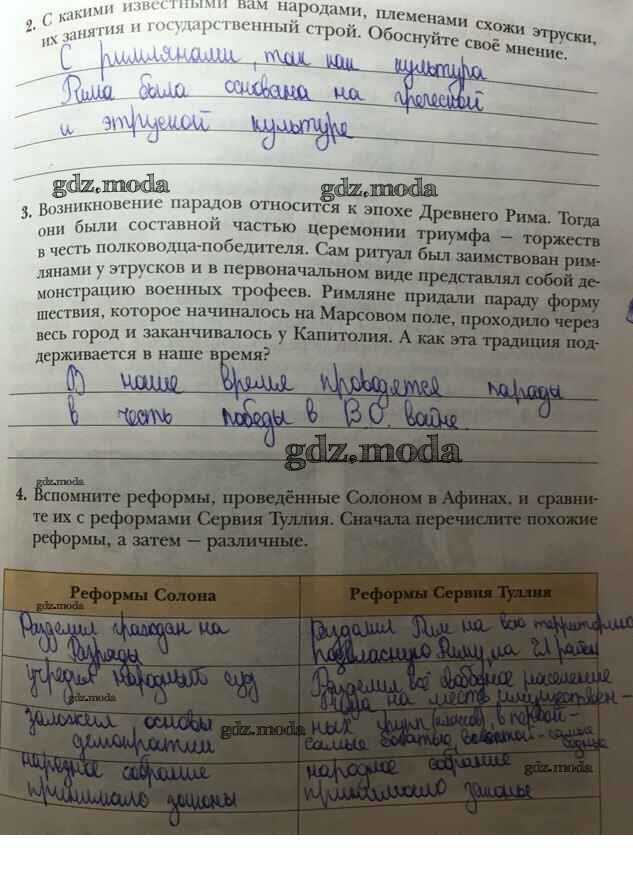 2. С какими известными вам народами, племенами схожи этруски,
их занятия и государственный строй. Обоснуйте своё мнение.
С римлянами, так как культура
Рима была основана на греческой
и этруской культуре
gdz.moda gdz.moda
3. Возникновение парадов относится к эпохе Древнего Рима. Тогда
они были составной частью церемонии триумфа — торжеств
в честь полководца-победителя. Сам ритуал был заимствован рим-
лянами у этрусков и в первоначальном виде представлял собой де-
монстрацию военных трофеев. Римляне придали параду форму
шествия, которое начиналось на Марсовом поле, проходило через
весь город и заканчивалось у Капитолия. А как эта традиция под-
держивается в наше время?
В наше время проводятся парады
в честь победы в В.О. войне.
gdz.moda
gdz.moda
4. Вспомните реформы, проведённые Солоном в Афинах, и сравни-
те их с реформами Сервия Туллия. Сначала перечислите похожие
реформы, а затем — различные.
Реформы Солона
Реформы Сервия Туллия
gdz.moda
Разделил граждан на
разряды
Рим на всю территорию
подвласную Риму, на 21 район
учредил народный суд
gdz.moda
Разделил всё свободное население
заложил основы
демократии
gdz.moda
ных групп (классов), в первой -
самые богатые, в - самые
бедные
народное собрание
принимало законы
народное собрание
gdz.moda
принимало законы